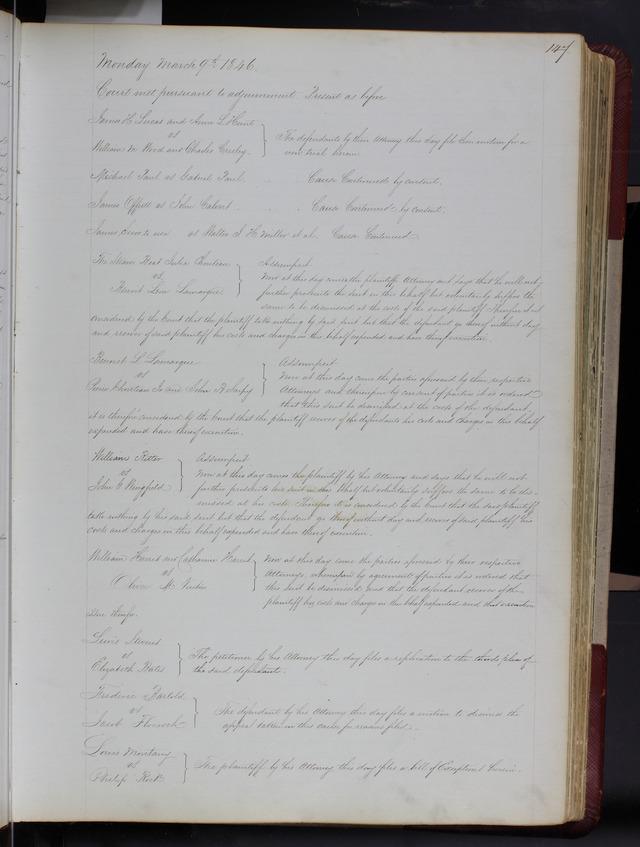 147
Monday March 9th 1846.
Court met pursuant to adjournment Present as before
James H Lucas and Ann L Hunt
vs
William M Wood and Charles
The defendants by their Attorney this day file their motion for a
new trial herein.
Michael Paul vs Gabriel Paul. Cause Continued by consent.
James Offill vs John Calvert Cause Continued by consent.
James to use vs Walter J. H. Miller et al. Cause Continued
The Steam Boat Julia Chouteau
vs
Bennet Lamarque
Assumpsit
Now at this day comes the plaintiffs Attorney and says that he will not
further prosecute the suit in this behalf but voluntarily suffers the
same to be dismissed at the cost of the said plaintiff. Therefore it is
considered by the Court that the plaintiff take nothing by said suit but that the defendant go thereof without day
and recover of said plaintiff his costs and charges in this behalf expended and have thereof execution.
Bennet L Lamarque
vs
Pierre Chouteau Jr and John B Sarpy
Assumpsit
Now at this day come the parties aforesaid by their respective
Attorneys and thereupon by consent of parties it is ordered
that this suit be dismissed at the costs of the defendant.
it is therefore considered by the Court that the plaintiff recover of the defendants his costs and charges in this behalf
expended and have thereof execution.
William Ritter
vs
John C Wingfield
Assumpsit
Now at this day comes the plaintiff by his Attorney and says that he will not
further prosecute his suit in this behalf but voluntarily suffers the same to be dis-
missed at his costs. Therefore it is considered by the Court that the said plaintiff
take nothing by his said suit but that the defendant go thereof without day and recover of said plaintiff his
costs and charges in this behalf expended and have thereof execution.
William Harris and Catharine Harris
vs
Oliver M.
Now at this day come the parties aforesaid by their respective
Attorneys, whereupon by agreement of parties it is ordered that
this suit be dismissed and that the defendant recover of the
plaintiff his costs and charges in this behalf expended and this execution
Lewis Stevens
vs
Elizabeth Bates
The petitioner by his Attorney this day files a replication to the third plea of
the said defendant.
Frederic Bartold
vs
Jacob
The defendant by his Attorney this day files a motion to dismiss the
appeal taken in this case for reasons filed.
Louis Montany
vs
Philip Rock
The plaintiff by his Attorney this day files a bill of Exceptions herein.